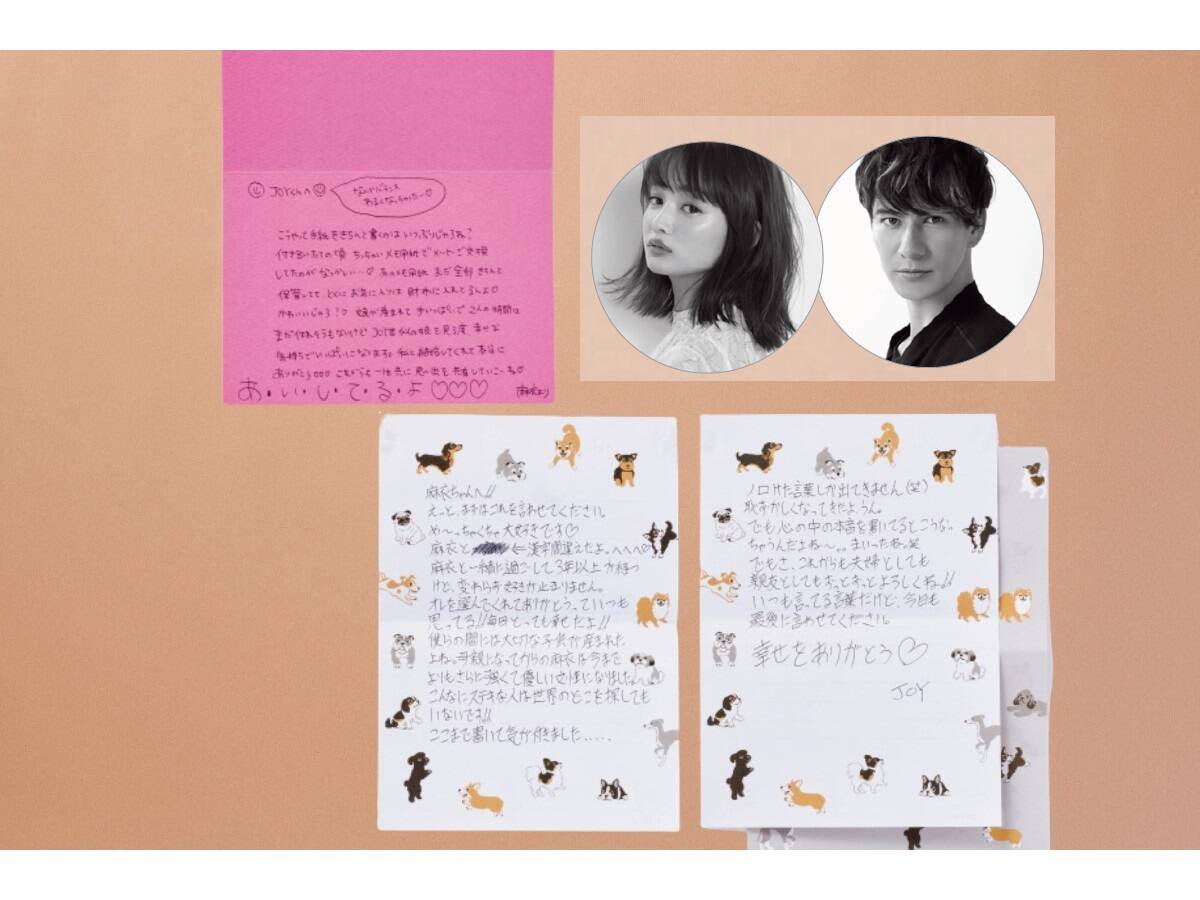 JOYくんへ
なんかバランス
わるくなっちゃった〜♡
こうやって手紙をきちんと書くのはいつぶりじゃろね?
付き合いたての頃 ちっちゃいメモ用紙でメッセージ交換
してたのがなつかしい…♡ あのメモ用紙 まだ全部きちんと
保管してて とくにお気に入りは財布に入れてるんよ♡
かわいいじゃろ!♡ 娘が産まれて手いっぱいで 2人の時間は
まだ作れそうもないけど JOY君似の娘を見る度 幸せな
気持ちでいっぱいになります。私と結婚してくれて本当に
ありがとう♡♡♡ これからも一生共に思い出を共有していこーね♡
あ・い・し・て・る・よ♡♡♡
麻衣より
麻衣ちゃんへ!!
えっと、まずはこれを言わせてください。
め〜っちゃくちゃ大好きです♡
麻衣と ←漢字間違えたよ。へへへ♡
麻衣と一緒に過ごして3年以上が経つ
けど、変わらず好きが止まりません。
オレを選んでくれてありがとうっていつも
思ってる!!毎日とっても幸せだよ!!
僕らの間には大切な子供が産まれた
よね。母親になってからの麻衣は今まで
よりもさらに強くて優しい女性になりました。
こんなにステキな人は世界のどこを探しても
いないです!!
ここまで書いて気が付きました.....
ノロけた言葉しか出てきません(笑)
恥ずかしくなってきたよ。うん。
でも心の中の本音を書いてるとこうなっ
ちゃうんだよね〜。。まいったね。笑
でもさ、これからも夫婦としても
親友としてもずっとずっとよろしくね!!
いつも言ってる言葉だけど、今日も
最後に言わせてください。
幸せをありがとう♡
JOY